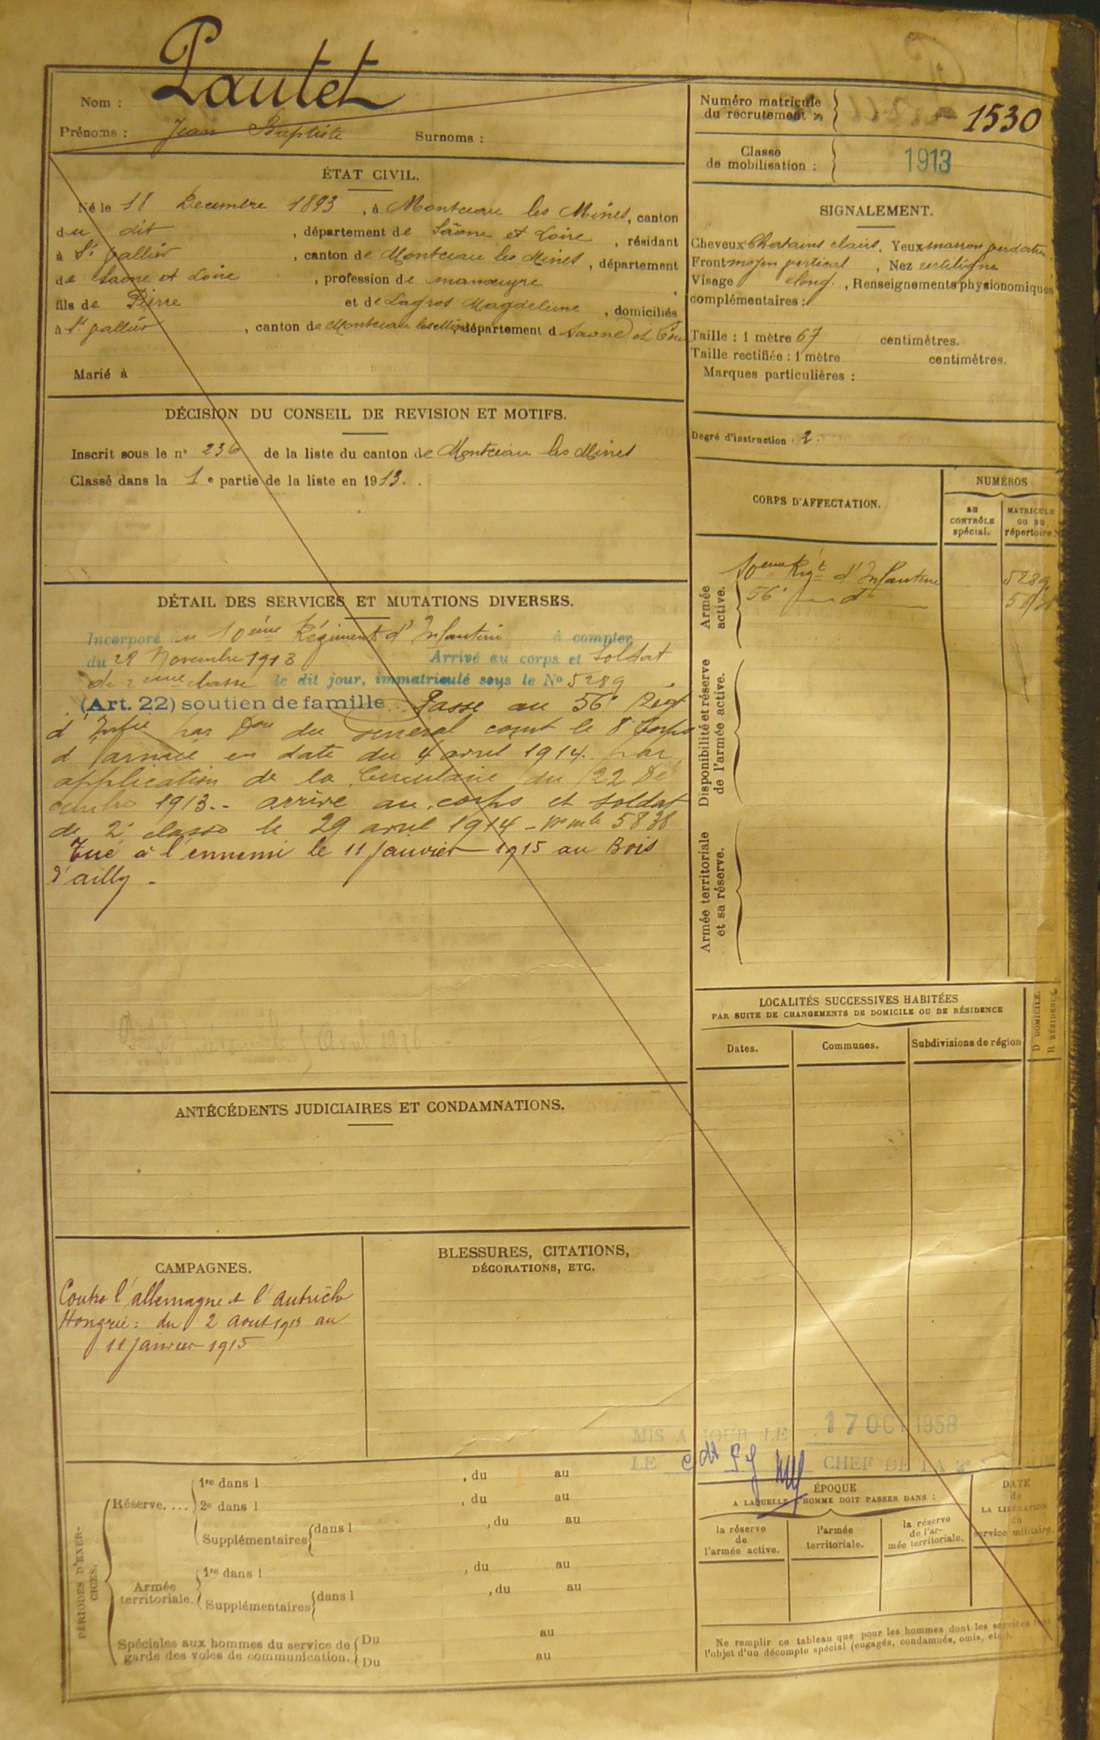 Nom : Pautet
Prénoms : Jean Baptiste Surnoms :
Numéro matricule du recrutement : 1530
Classe de mobilisation : 1913
ÉTAT CIVIL.
Né le 11 Decembre 1893, à Montceau les Mines, canton
du dit, département de Saone et Loire, résidant
à St Vallier, canton de Montceau les Mines, département
de Saone et Loire, profession de manœuvre
fils de Pierre et de Lagros Magdeleine, domiciliés
à St Vallier, canton de Montceau les Mines, département d Saone et Loire
Marié à
SIGNALEMENT.
Cheveux Chatains clairs. Yeux marron
Front moyen vertical, Nez rectiligne
Visage long, Renseignements physionomiques
complémentaires :
Taille : 1 mètre 67 centimètres.
Taille rectifiée : 1 mètre centimètres.
Marques particulières :
Degré d'instruction : 2
DÉCISION DU CONSEIL DE REVISION ET MOTIFS.
Inscrit sous le n° 236 de la liste du canton de Montceau les Mines
Classé dans la 1e partie de la liste en 1913.
CORPS D'AFFECTATION.
NUMÉROS
AU CONTRÔLE spécial.
MATRICULE OU AU répertoire
Armée active.
10eme Régt d'Infanterie 5289
56e d°
Disponibilité et réserve de l'armée active.
Armée territoriale et sa réserve.
DÉTAIL DES SERVICES ET MUTATIONS DIVERSES.
Incorporé au 10ème Régiment d'Infanterie à compter
du 28 Novembre 1913 Arrivé au corps et soldat
de 2eme classe le dit jour, immatriculé sous le No 5289
(Art. 22) soutien de famille. Passe au 56e Régt
d'Infie par Don du Général comt le 8e Corps
d'armée en date du 4 avril 1914. par
application de la Circulaire du 22 Dé
cembre 1913. - arrivé au corps et soldat
de 2e classe le 29 avril 1914 - No mle 5838
Tué à l'ennemi le 11 Janvier 1915 au Bois
d'ailly -
LOCALITÉS SUCCESSIVES HABITÉES
PAR SUITE DE CHANGEMENTS DE DOMICILE OU DE RÉSIDENCE
Dates.
Communes.
Subdivisions de région
D DOMICILE.
R RÉSIDENCE.
ANTÉCÉDENTS JUDICIAIRES ET CONDAMNATIONS.
CAMPAGNES.
Contre l'allemagne et l'autriche
Hongrie : du 2 aout 1914 au
11 janvier 1915
BLESSURES, CITATIONS,
DÉCORATIONS, ETC.
MIS A JOUR LE 17 OCT 1958
LE CHEF DE LA
PÉRIODES D'EXERCICES.
Réserve....
1re dans l , du au
2e dans l , du au
Supplémentaires dans l , du au
Armée territoriale.
1re dans l , du au
Supplémentaires dans l , du au
Spéciales aux hommes du service de garde des voies de communication.
Du au
Du au
ÉPOQUE
A LAQUELLE L'HOMME DOIT PASSER DANS :
la réserve de l'armée active.
l'armée territoriale.
la réserve de l'armée territoriale.
DATE de LA LIBÉRATION du service militaire.
Ne remplir ce tableau que pour les hommes dont les services font
l'objet d'un décompte spécial (engagés, condamnés, omis, etc.).